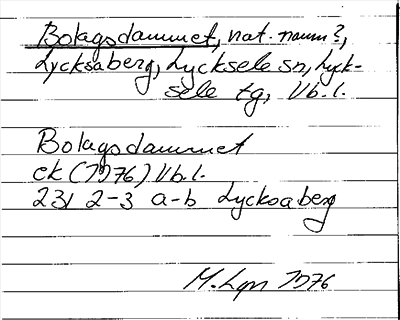 Bolagsdammet, nat. namn?,
Lycksaberg, Lycksele sn, Lyck-
sele tg, Vb.l.
Bolagsdammet
ek (1976) Vb.l.
23I 2-3 a-b Lycksaberg
M. Lgn 1976